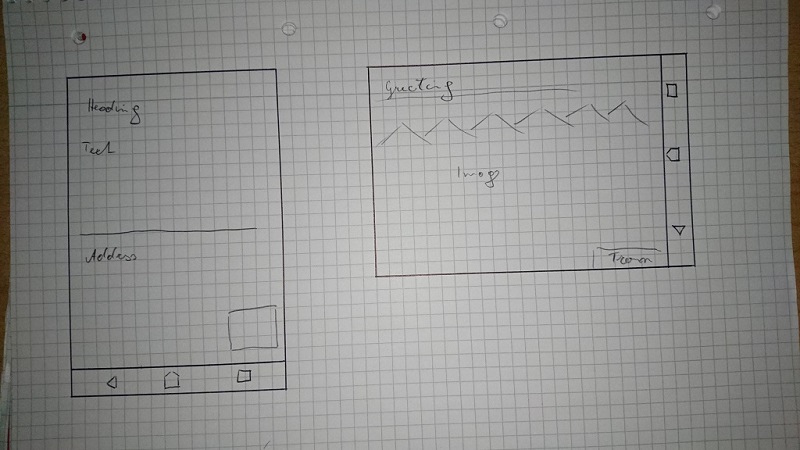 Heading
Text
Address
Greeting
Image